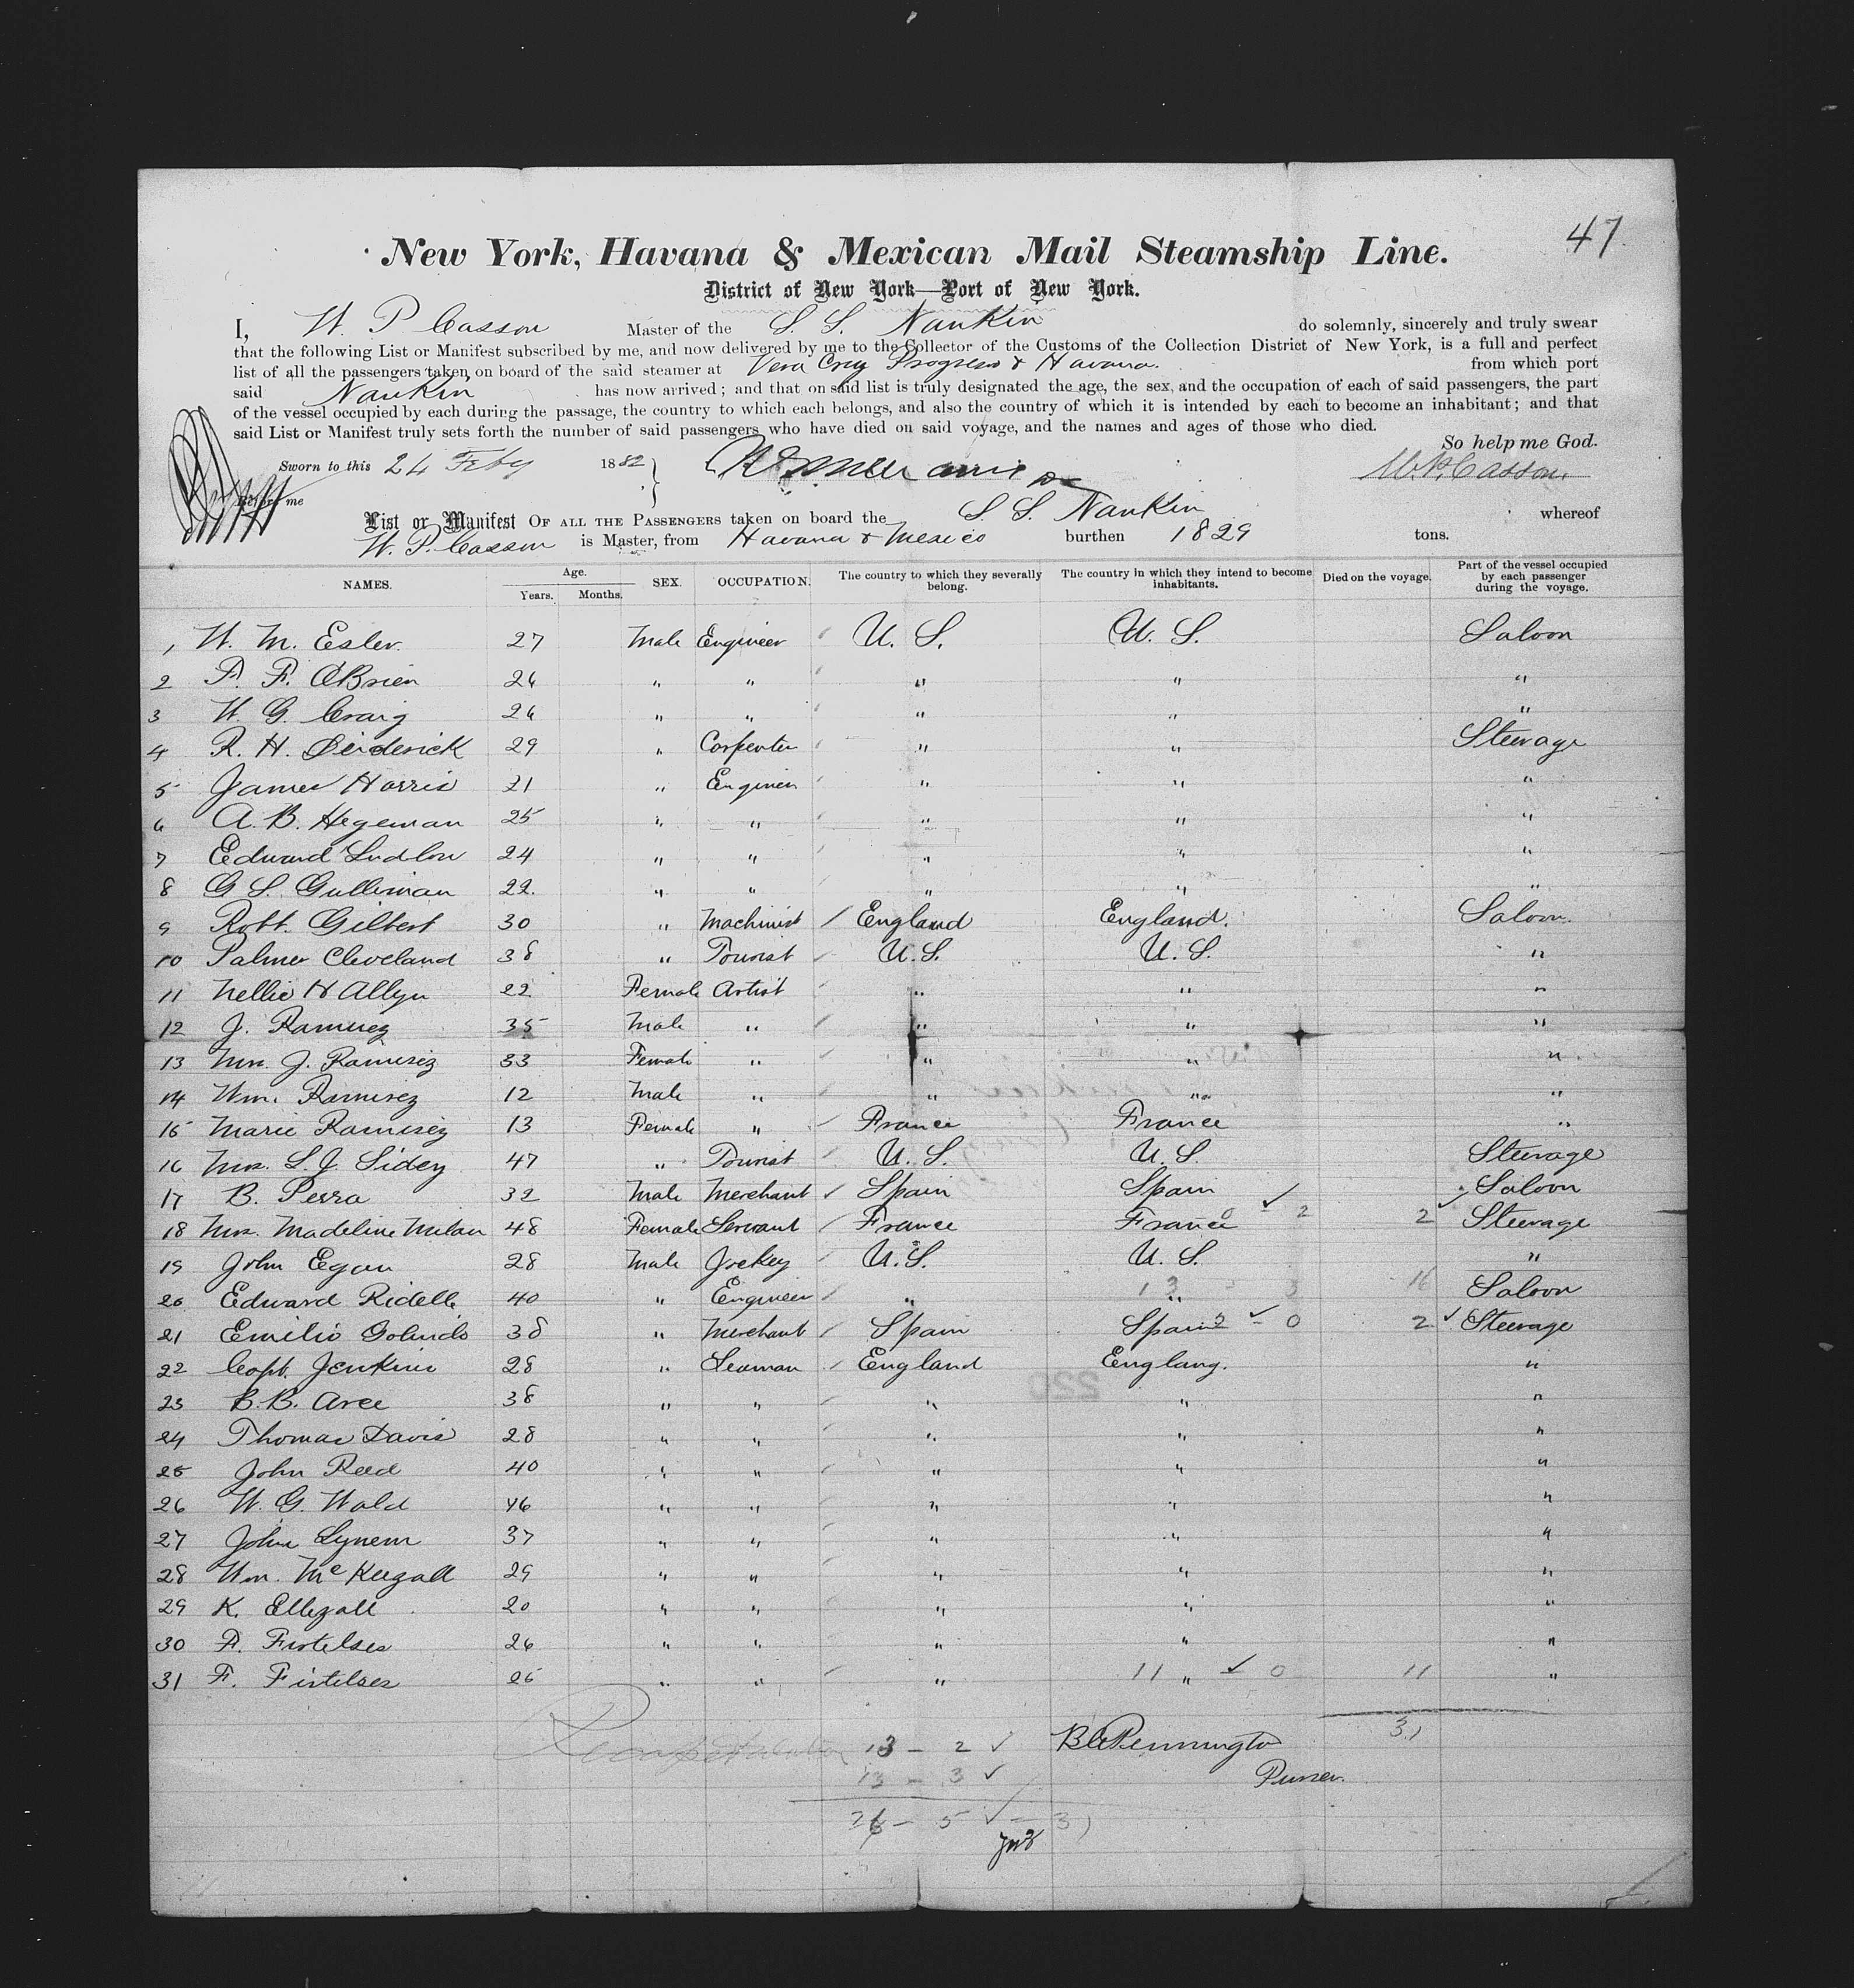 47
New York, Havana & Mexican Mail Steamship Line.
District of New York—Port of New York.
I, W. P Casson Master of the S. S. Nankin do solemnly, sincerely and truly swear
that the following List or Manifest subscribed by me, and now delivered by me to the Collector of the Customs of the Collection District of New York, is a full and perfect
list of all the passengers taken on board of the said steamer at Vera Cruz Progreso & Havana. from which port
said Nankin has now arrived; and that on said list is truly designated the age, the sex, and the occupation of each of said passengers, the part
of the vessel occupied by each during the passage, the country to which each belongs, and also the country of which it is intended by each to become an inhabitant; and that
said List or Manifest truly sets forth the number of said passengers who have died on said voyage, and the names and ages of those who died.
So help me God.
Sworn to this 24 Feby 1882 W. P. Casson
Before me
List or Manifest OF ALL THE PASSENGERS taken on board the S. S. Nankin whereof
W. P. Casson is Master, from Havana & Mexico burthen 1829 tons.
NAMES. Age. Years. Months. SEX. OCCUPATION. The country to which they severally belong. The country in which they intend to become inhabitants. Died on the voyage. Part of the vessel occupied by each passenger during the voyage.
1 W. M. Esler. 27 Male Engineer U. S. U. S. Saloon
2 P. F. O'Brien 26 " " " " "
3 W. G. Craig 26 " " " " "
4 R. H. Deiderick 29 " Carpenter " " Steerage
5 James Harris 21 " Engineer " " "
6 A. B. Hegeman 25 " " " " "
7 Edward Ludlow 24 " " " " "
8 G S. Gulliman 22. " " " " "
9 Robt. Gilbert 30 " Machinist England England. Saloon.
10 Palmer Cleveland 38 " Tourist U. S. U. S. "
11 Nellie H Allyn 22 Female Artist " " "
12 J. Ramirez 35 Male " " " "
13 Mrs. J. Ramirez 33 Female " " " "
14 Wm. Ramirez 12 Male " " " "
15 Marie Ramirez 13 Female " France France "
16 Mrs. S. J. Sidey 47 " Tourist U. S. U. S. Steerage
17 B. Perra 32 Male Merchant Spain Spain Saloon
18 Mrs. Madeline Milan 48 Female Servant France France 0 - 2 2 Steerage
19 John Egan 28 Male Jockey U. S. U. S. "
20 Edward Ridelle 40 " Engineer " " 13 - 3 16 Saloon
21 Emilio Golindo 38 " Merchant Spain Spain 2 - 0 2 Steerage
22 Capt. Jenkins 28 " Seaman England Englang. "
23 B. B. Arce 38 " " " " "
24 Thomas Davis 28 " " " " "
25 John Reed 40 " " " " "
26 W. G. Wald 46 " " " " "
27 John Lynem 37 " " " " "
28 Wm. McKeegall 29 " " " " "
29 K. Ellegall 20 " " " " "
30 F. Fistelses 26 " " " " "
31 F. Fistelses 25 " " " 11 " 0 11 "
31
Recapitulation 13 - 2 B Pennington
13 - 3 Purser.
26 - 5 - 31